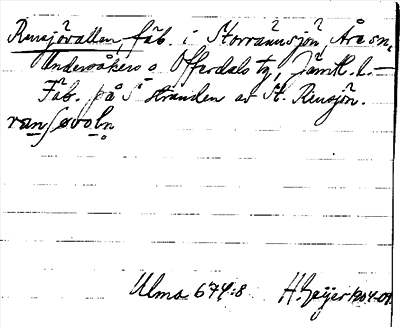 Rensjövallen, fäb. i Storrännsjön, Åre sn,
Undersåkers o Offerdals tg, Jämtl. l. —
Fäb. på S stranden av St. Rensjön.
ranʃøvoln
Ulma 674:8 H. Geijer 1904-09.